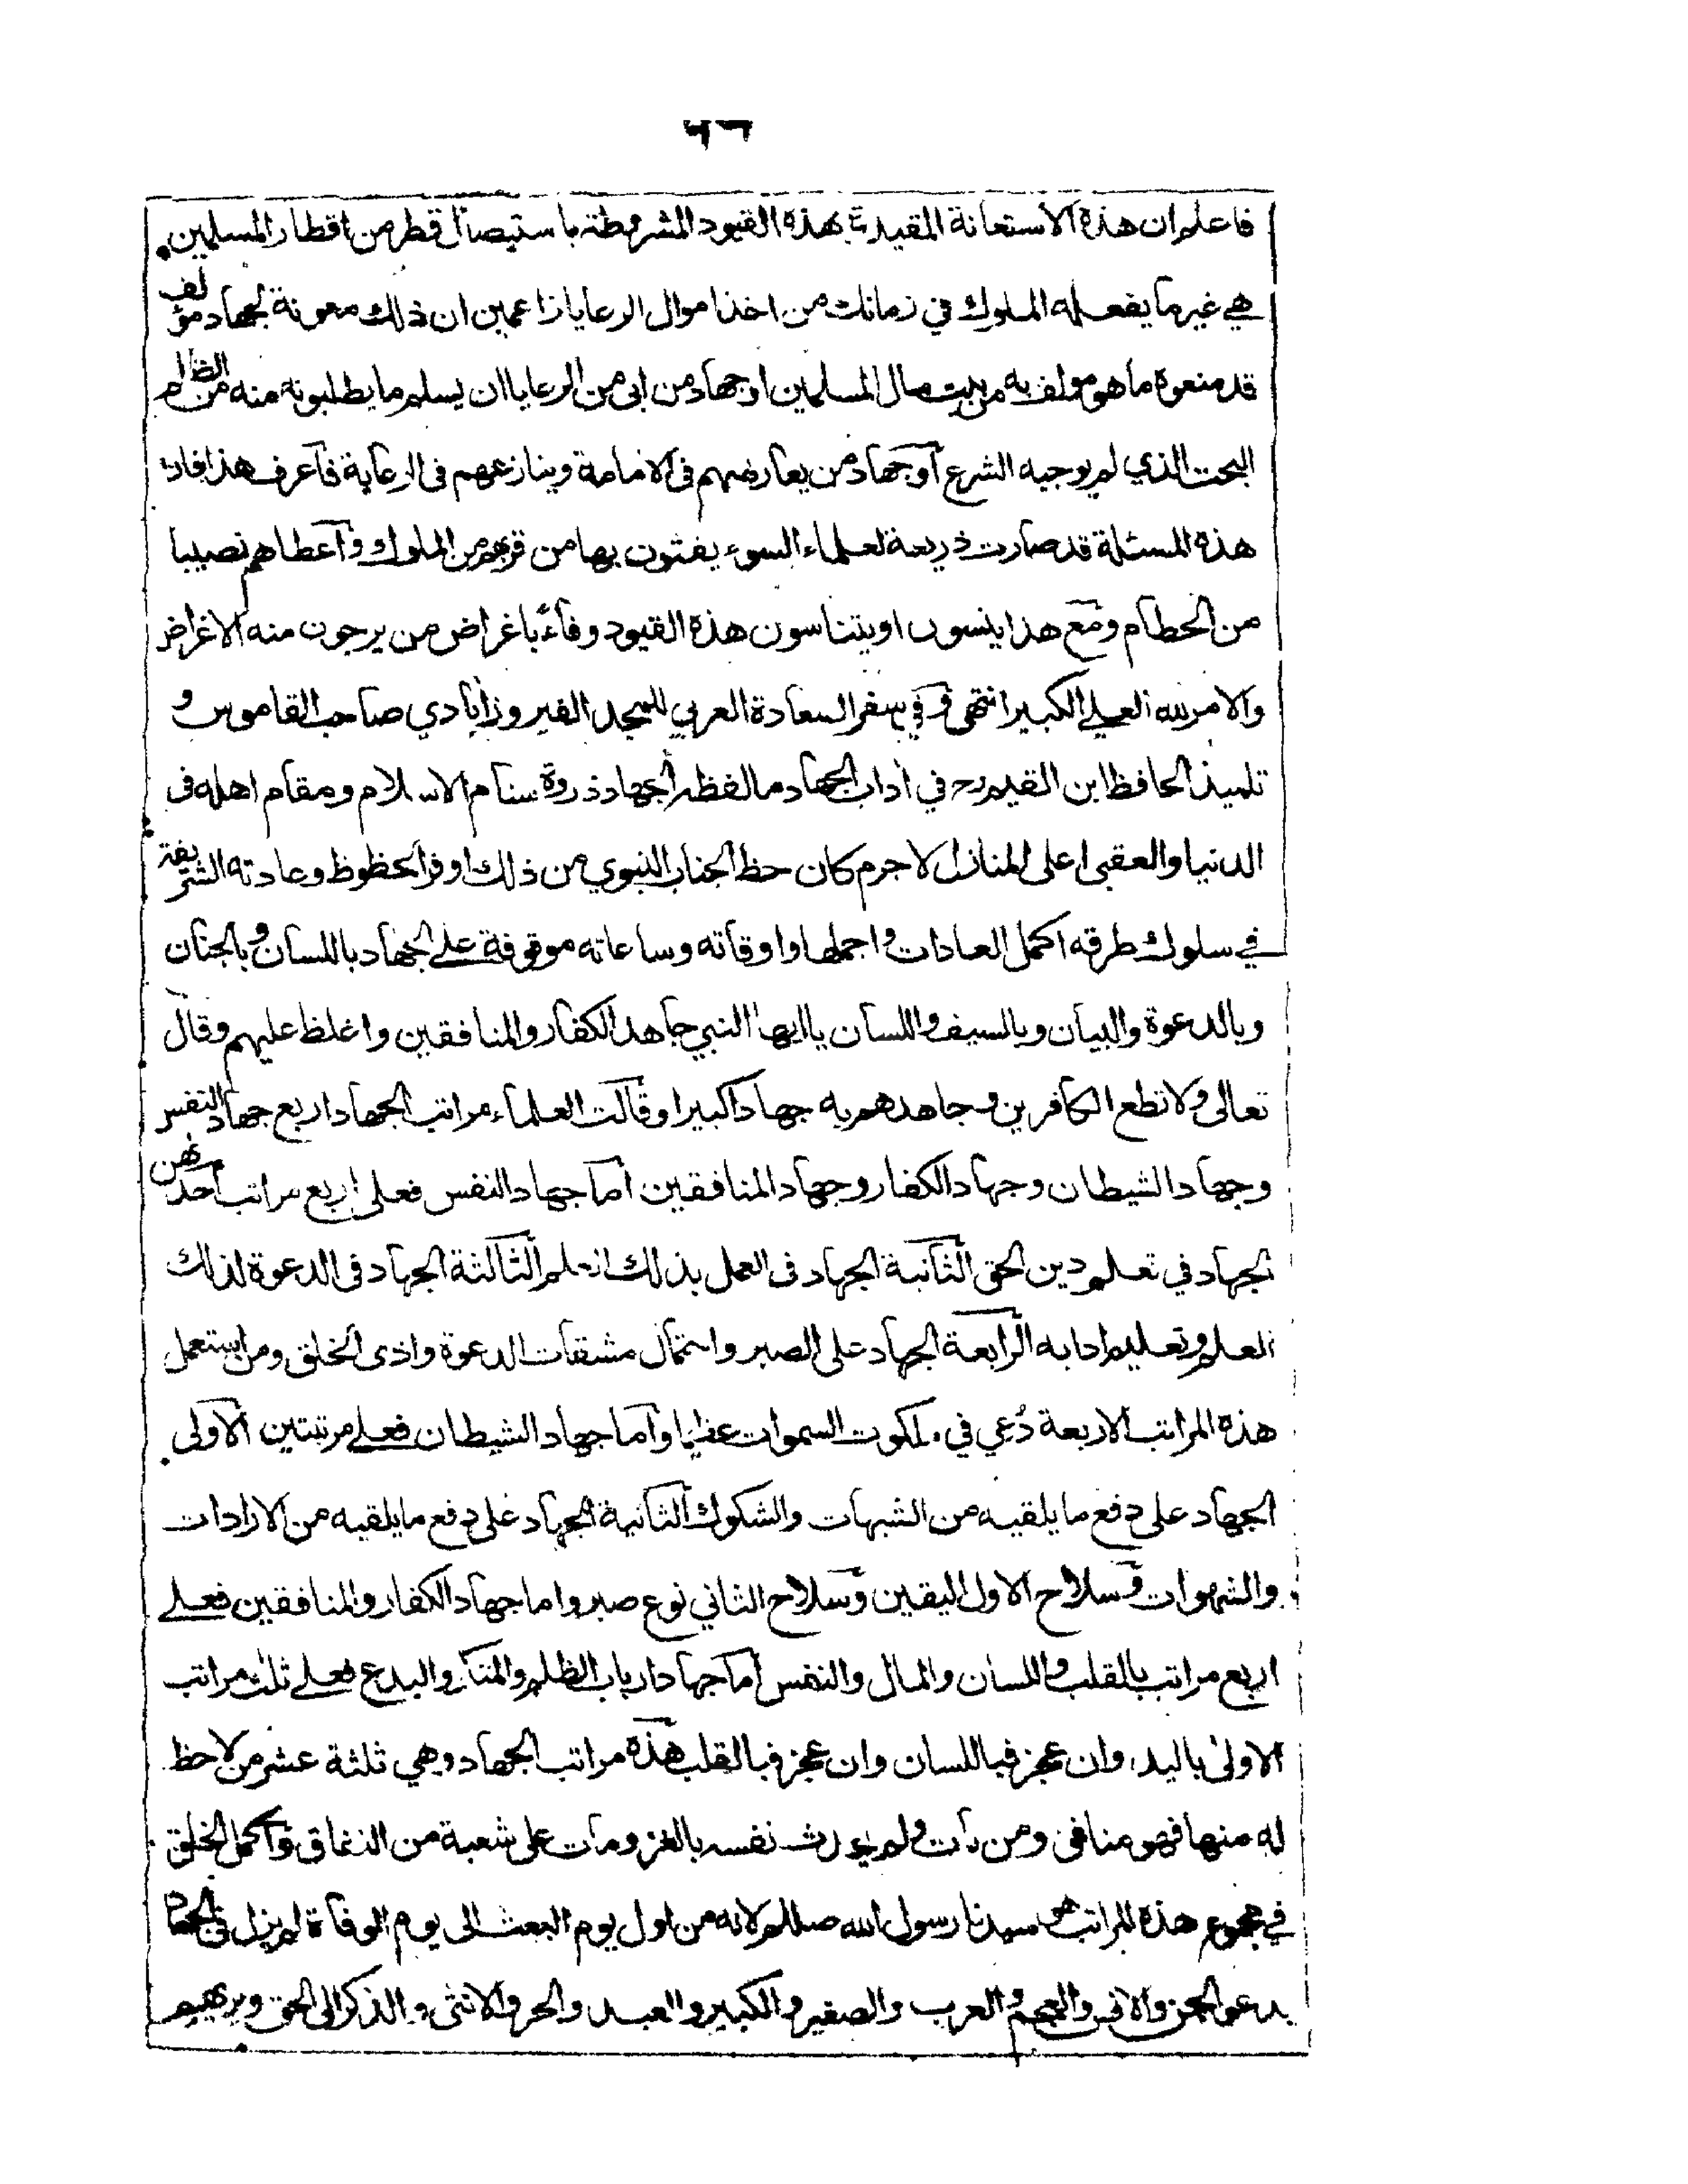 ٢٦
فاعلم ان هذه الاستعانة المقيدة بهذه القيود المشروطة باستيصال قطر من اقطار المسلمين
هي غير ما يفعله الملوك في زمانك من اخذ اموال الرعايا زاعمين ان ذلك معونة لجهاد مؤلف
قد منعوه ما هو مولف به من بيت مال المسلمين او جهاد من ابى من الرعايا ان يسلم ما يطلبونه منه من الظلم
البحت الذي لم يوجبه الشرع او جهاد من يعارضهم في الامامة وينازعهم في الرعاية فاعرف هذا فان
هذه المسئلة قد صارت ذريعة لعلماء السوء يفتون بها من قربهم من الملوك واعطاهم نصيبا
من الحطام ومع هذا ينسون او يتناسون هذه القيود وفاءً باغراض من يرجون منه الاغراض
والامر لله العلي الكبير انتهى وفي سفر السعادة العربي للمجد الفيروزابادي صاحب القاموس و
تلميذ الحافظ ابن القيم رح في اداب الجهاد ما لفظه الجهاد ذروة سنام الاسلام ومقام اهله في
الدنيا والعقبى اعلى المنازل لاجرم كان حظ الجناب النبوي من ذلك اوفر الحظوظ وعادته الشريفة
في سلوك طرقه اكمل العادات واجملها واوقاته وساعاته موقوفة على الجهاد باللسان وبالجنان
وبالدعوة والبيان وبالسيف واللسان ياايها النبي جاهد الكفار والمنافقين واغلظ عليهم وقال
تعالى ولا تطع الكافرين وجاهدهم به جهادا كبيرا وقالت العلماء مراتب الجهاد اربع جهاد النفس
وجهاد الشيطان وجهاد الكفار وجهاد المنافقين اما جهاد النفس فعلى اربع مراتب احدٰهن
الجهاد في تعلم دين الحق الثانية الجهاد في العمل بذلك العلم الثالثة الجهاد في الدعوة لذلك
العلم وتعليم ادابه الرابعة الجهاد على الصبر واحتمال مشقات الدعوة واذى الخلق ومن استعمل
هذه المراتب الاربعة دُعي في ملكوت السموات عظيما واما جهاد الشيطان فعلى مرتبتين الاولى
الجهاد على دفع ما يلقيه من الشبهات والشكوك الثانية الجهاد على دفع ما يلقيه من الارادات
والشهوات وسلاح الاول اليقين وسلاح الثاني نوع صبر واما جهاد الكفار والمنافقين فعلى
اربع مراتب بالقلب واللسان والمال والنفس اما جهاد ارباب الظلم والمناكر والبدع فعلى ثلث مراتب
الاولى باليد وان عجز فباللسان وان عجز فبالقلب هذه مراتب الجهاد وهي ثلثة عشر من لاحظ
له منها فهو منافق ومن مات ولم يحدث نفسه بالغزو مات على شعبة من النفاق واكمل الخلق
في مجموع هذه المراتب هو سيدنا رسول الله صللم لانه من اول يوم البعث الى يوم الوفاة لم يزل في الجهاد
يدعو الجن والانس والعجم والعرب والصغير والكبير والعبد والحر والانثى والذكر الى الحق ويرهيهم